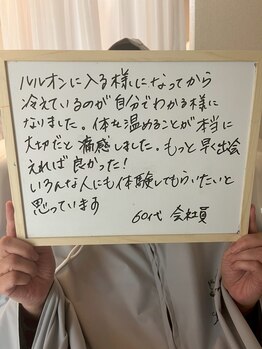 ルルオンに入る様になってから
冷えているのが自分でわかる様に
なりました。体を温めることが本当に
大切だと痛感しました。もっと早く出会
えれば良かった!
いろんな人にも体験してもらいたいと
思っています
60代 会社員